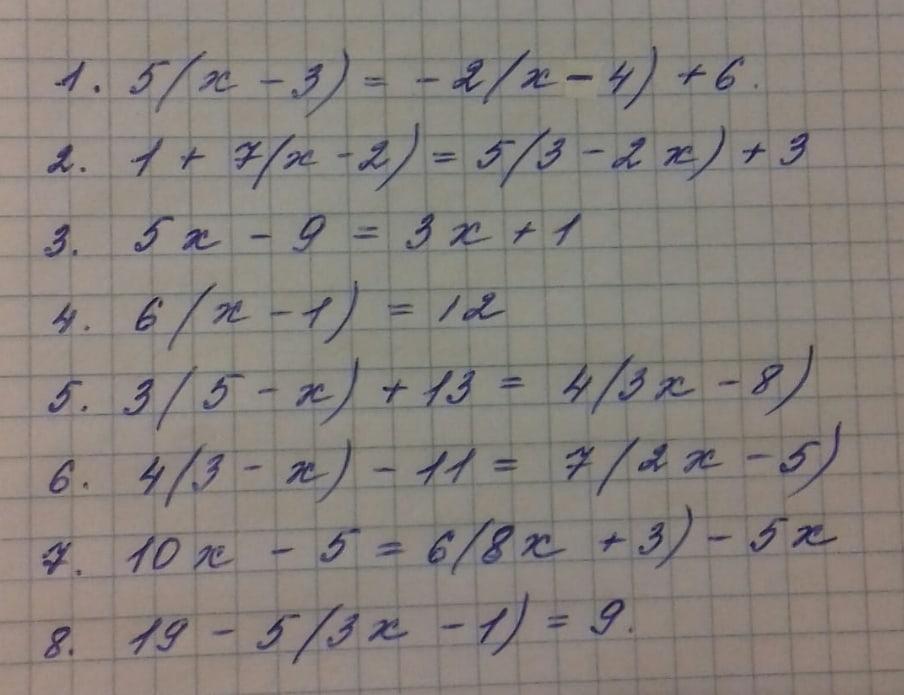 1. 5(x - 3) = -2(x - 4) + 6.
2. 1 + 7(x - 2) = 5(3 - 2x) + 3
3. 5x - 9 = 3x + 1
4. 6(x - 1) = 12
5. 3(5 - x) + 13 = 4(3x - 8)
6. 4(3 - x) - 11 = 7(2x - 5)
7. 10x - 5 = 6(8x + 3) - 5x
8. 19 - 5(3x - 1) = 9.